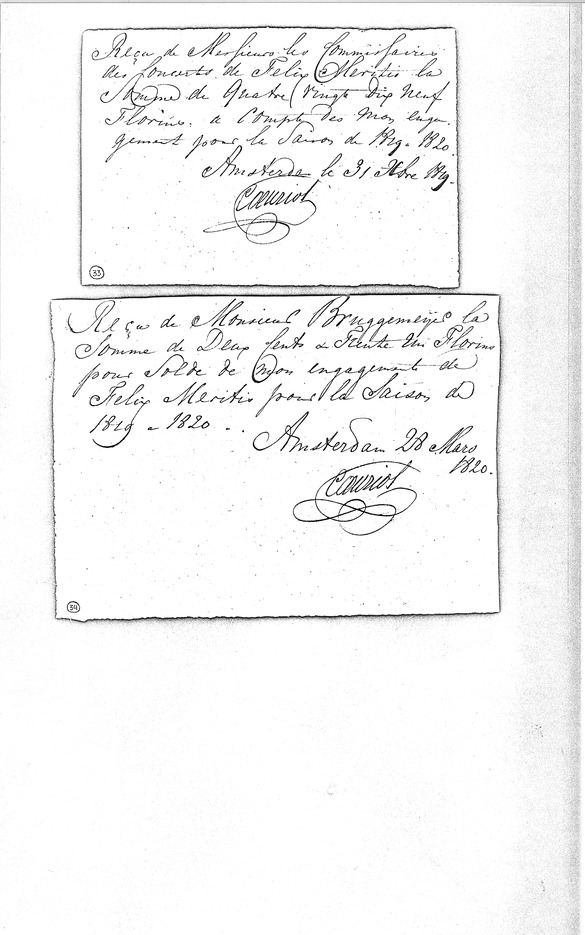 Reçu de Messieurs les Commissaires
des Concerts de Felix Meritis la
Somme de Quatre Vingts dix neuf
Florins. a Compte des mon enga-
gement pour la Saison de 1819 - 1820.
Amsterdam le 31 Xbre 1819.
Couriol
33
Reçu de Monsieur Bruggemeijer la
Somme de Deux Cents & Trente Un Florins
pour Solde de Mon engagement de
Felix Meritis pour la Saison de
1819 - 1820 -.
Amsterdam 28 Mars
1820.
Couriol
34